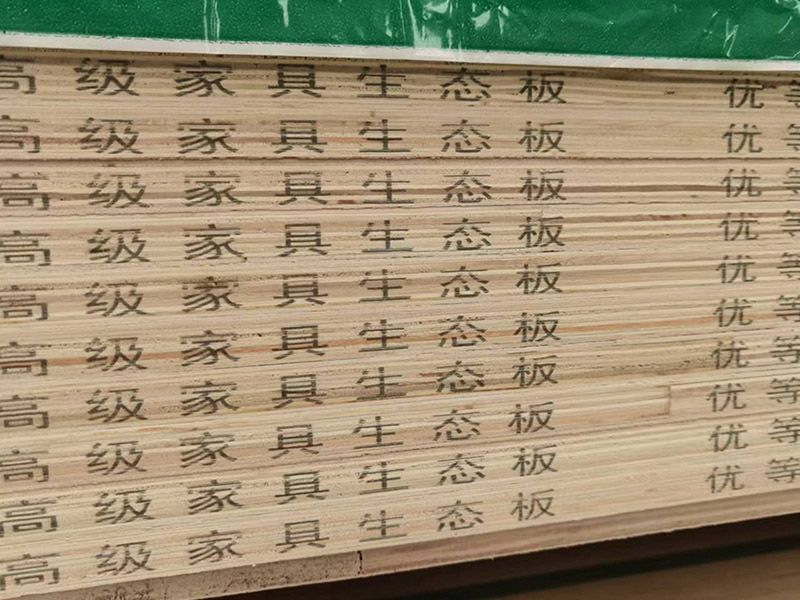 高级家具生态板 优等
高级家具生态板 优等
高级家具生态板 优等
高级家具生态板 优等
高级家具生态板 优等
高级家具生态板 优等
高级家具生态板 优等
高级家具生态板 优等
高级家具生态板 优等
高级家具生态板 优等